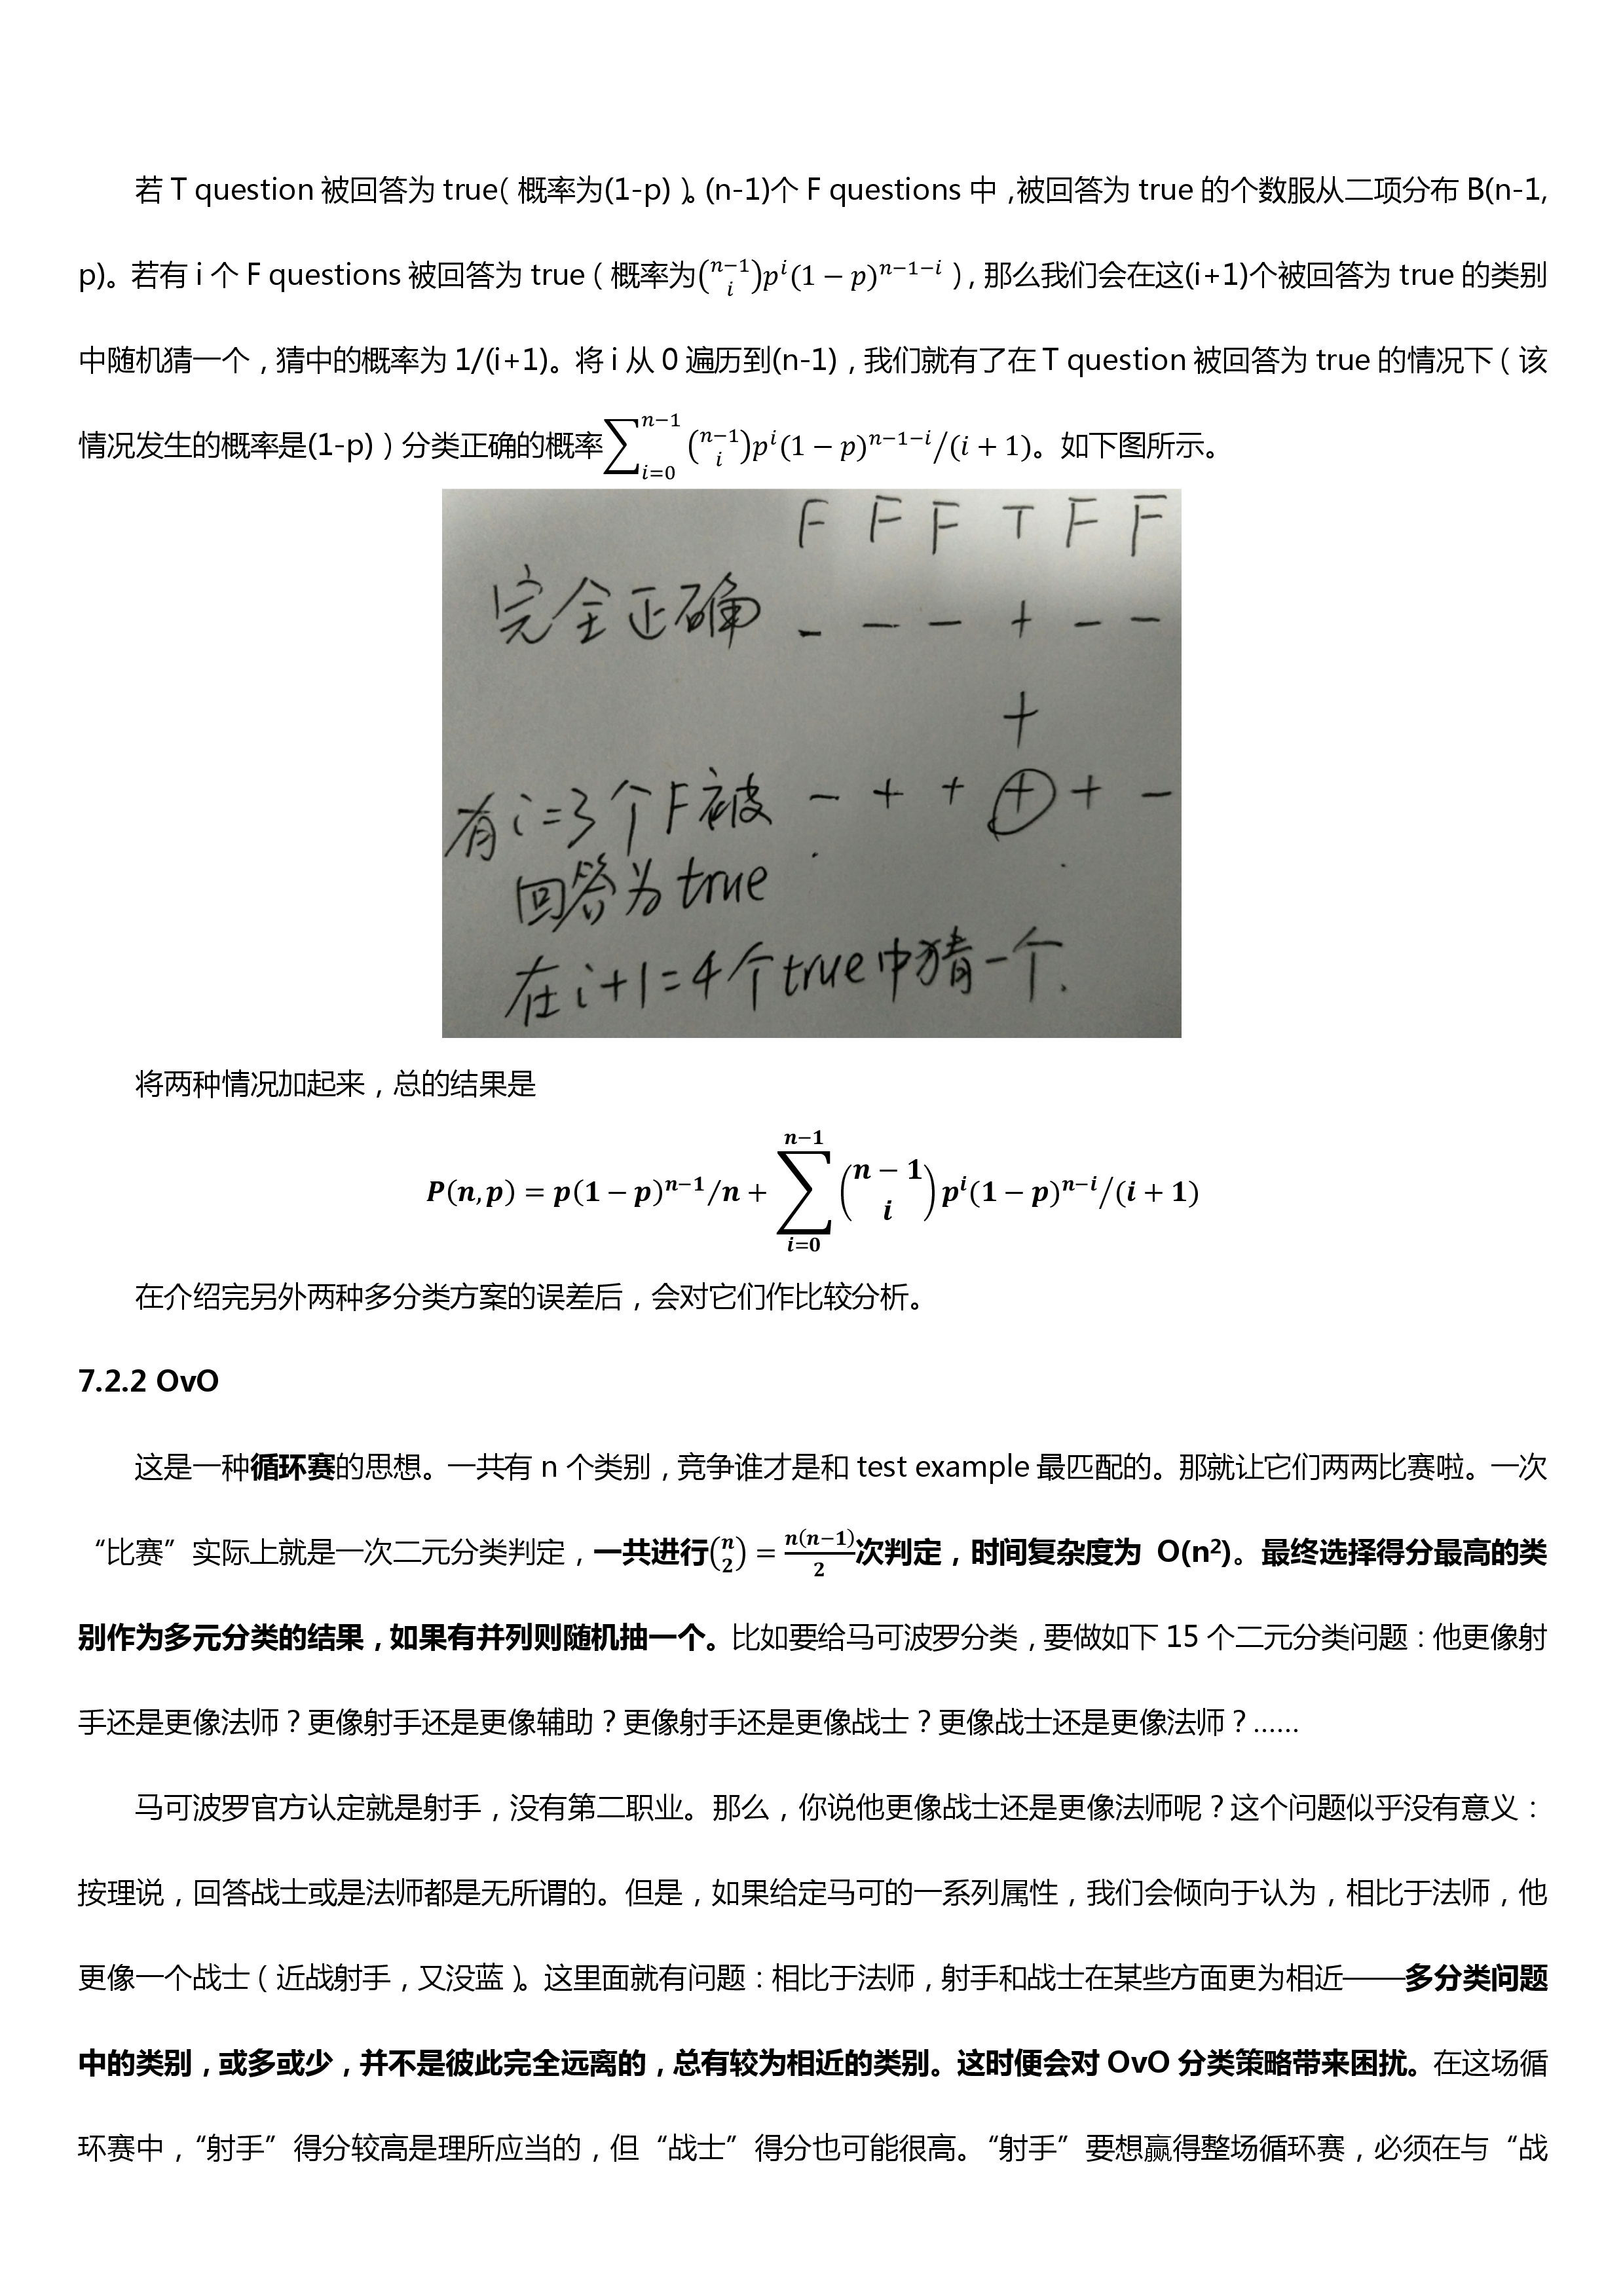 若 T question 被回答为 true（概率为(1-p)）。(n-1)个 F questions 中，被回答为 true 的个数服从二项分布 B(n-1,
p)。若有 i 个 F questions 被回答为 true（概率为$\binom{n-1}{i}p^i(1-p)^{n-1-i}$），那么我们会在这(i+1)个被回答为 true 的类别
中随机猜一个，猜中的概率为 1/(i+1)。将 i 从 0 遍历到(n-1)，我们就有了在 T question 被回答为 true 的情况下（该
情况发生的概率是(1-p)）分类正确的概率$\sum_{i=0}^{n-1}\binom{n-1}{i}p^i(1-p)^{n-1-i}/(i+1)$。如下图所示。
F F F T F F
完全正确 - - - + - -
+
有i=3个F被 - + + + + -
回答为true
在i+1=4个true中猜一个.
将两种情况加起来，总的结果是
$P(n,p)=p(1-p)^{n-1}/n+\sum_{i=0}^{n-1}\binom{n-1}{i}p^i(1-p)^{n-i}/(i+1)$
在介绍完另外两种多分类方案的误差后，会对它们作比较分析。
7.2.2 OvO
这是一种循环赛的思想。一共有 n 个类别，竞争谁才是和 test example 最匹配的。那就让它们两两比赛啦。一次
“比赛”实际上就是一次二元分类判定，一共进行$\binom{n}{2}=\frac{n(n-1)}{2}$次判定，时间复杂度为 O(n²)。最终选择得分最高的类
别作为多元分类的结果，如果有并列则随机抽一个。比如要给马可波罗分类，要做如下 15 个二元分类问题：他更像射
手还是更像法师？更像射手还是更像辅助？更像射手还是更像战士？更像战士还是更像法师？......
马可波罗官方认定就是射手，没有第二职业。那么，你说他更像战士还是更像法师呢？这个问题似乎没有意义：
按理说，回答战士或是法师都是无所谓的。但是，如果给定马可的一系列属性，我们会倾向于认为，相比于法师，他
更像一个战士（近战射手，又没蓝）。这里面就有问题：相比于法师，射手和战士在某些方面更为相近——多分类问题
中的类别，或多或少，并不是彼此完全远离的，总有较为相近的类别。这时便会对 OvO 分类策略带来困扰。在这场循
环赛中，“射手”得分较高是理所应当的，但“战士”得分也可能很高。“射手”要想赢得整场循环赛，必须在与“战